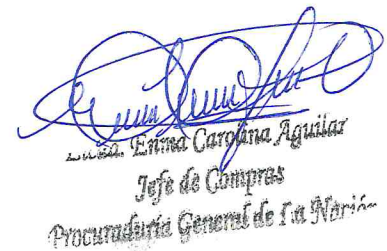 Enma Carolina Aguilar
Jefe de Compras
Procuraduría General de La Nación